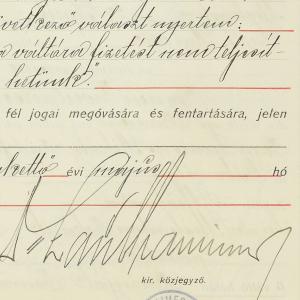 vetkező választ nyertem:
a váltóra fizetést nem teljesít-
hetünk".
fél jogai megóvására és fentartására, jelen
kettő évi május hó
kir. közjegyző.